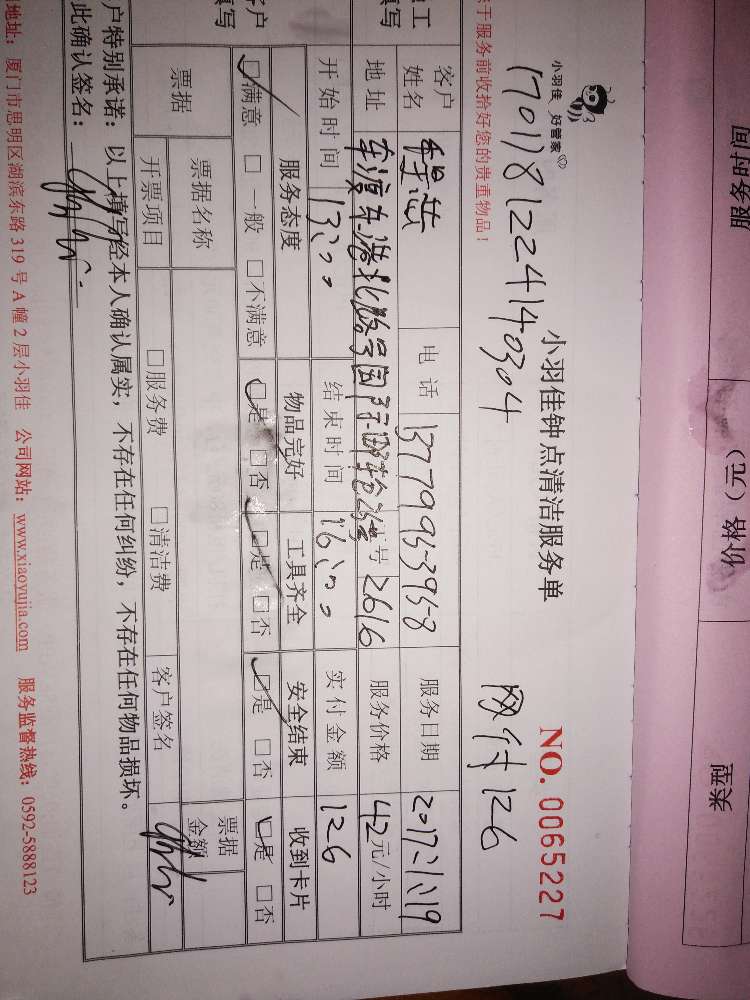 服务时间
价格（元）
类型
小羽佳 好管家
小羽佳钟点清洁服务单
NO. 0065227
1701181224140304
网付 126
于服务前收拾好您的贵重物品！
工
填写
客户
姓名
电话
服务日期
2017.1.19
地址
号
2616
服务价格
42元/小时
开始时间
13:00
结束时间
16:00
实付金额
126
客户
填写
服务态度
物品完好
工具齐全
安全结束
收到卡片
☑满意 □一般 □不满意
☑是 □否
☑是 □否
☑是 □否
☑是 □否
票据
票据名称
票据
金额
开票项目
□服务费 □清洁费
客户签名
户特别承诺：以上填写经本人确认属实，不存在任何纠纷，不存在任何物品损坏。
此确认签名：
地址：厦门市思明区湖滨东路 319 号 A 幢 2 层小羽佳 公司网站：www.xiaoyujia.com 服务监督热线：0592-5888123